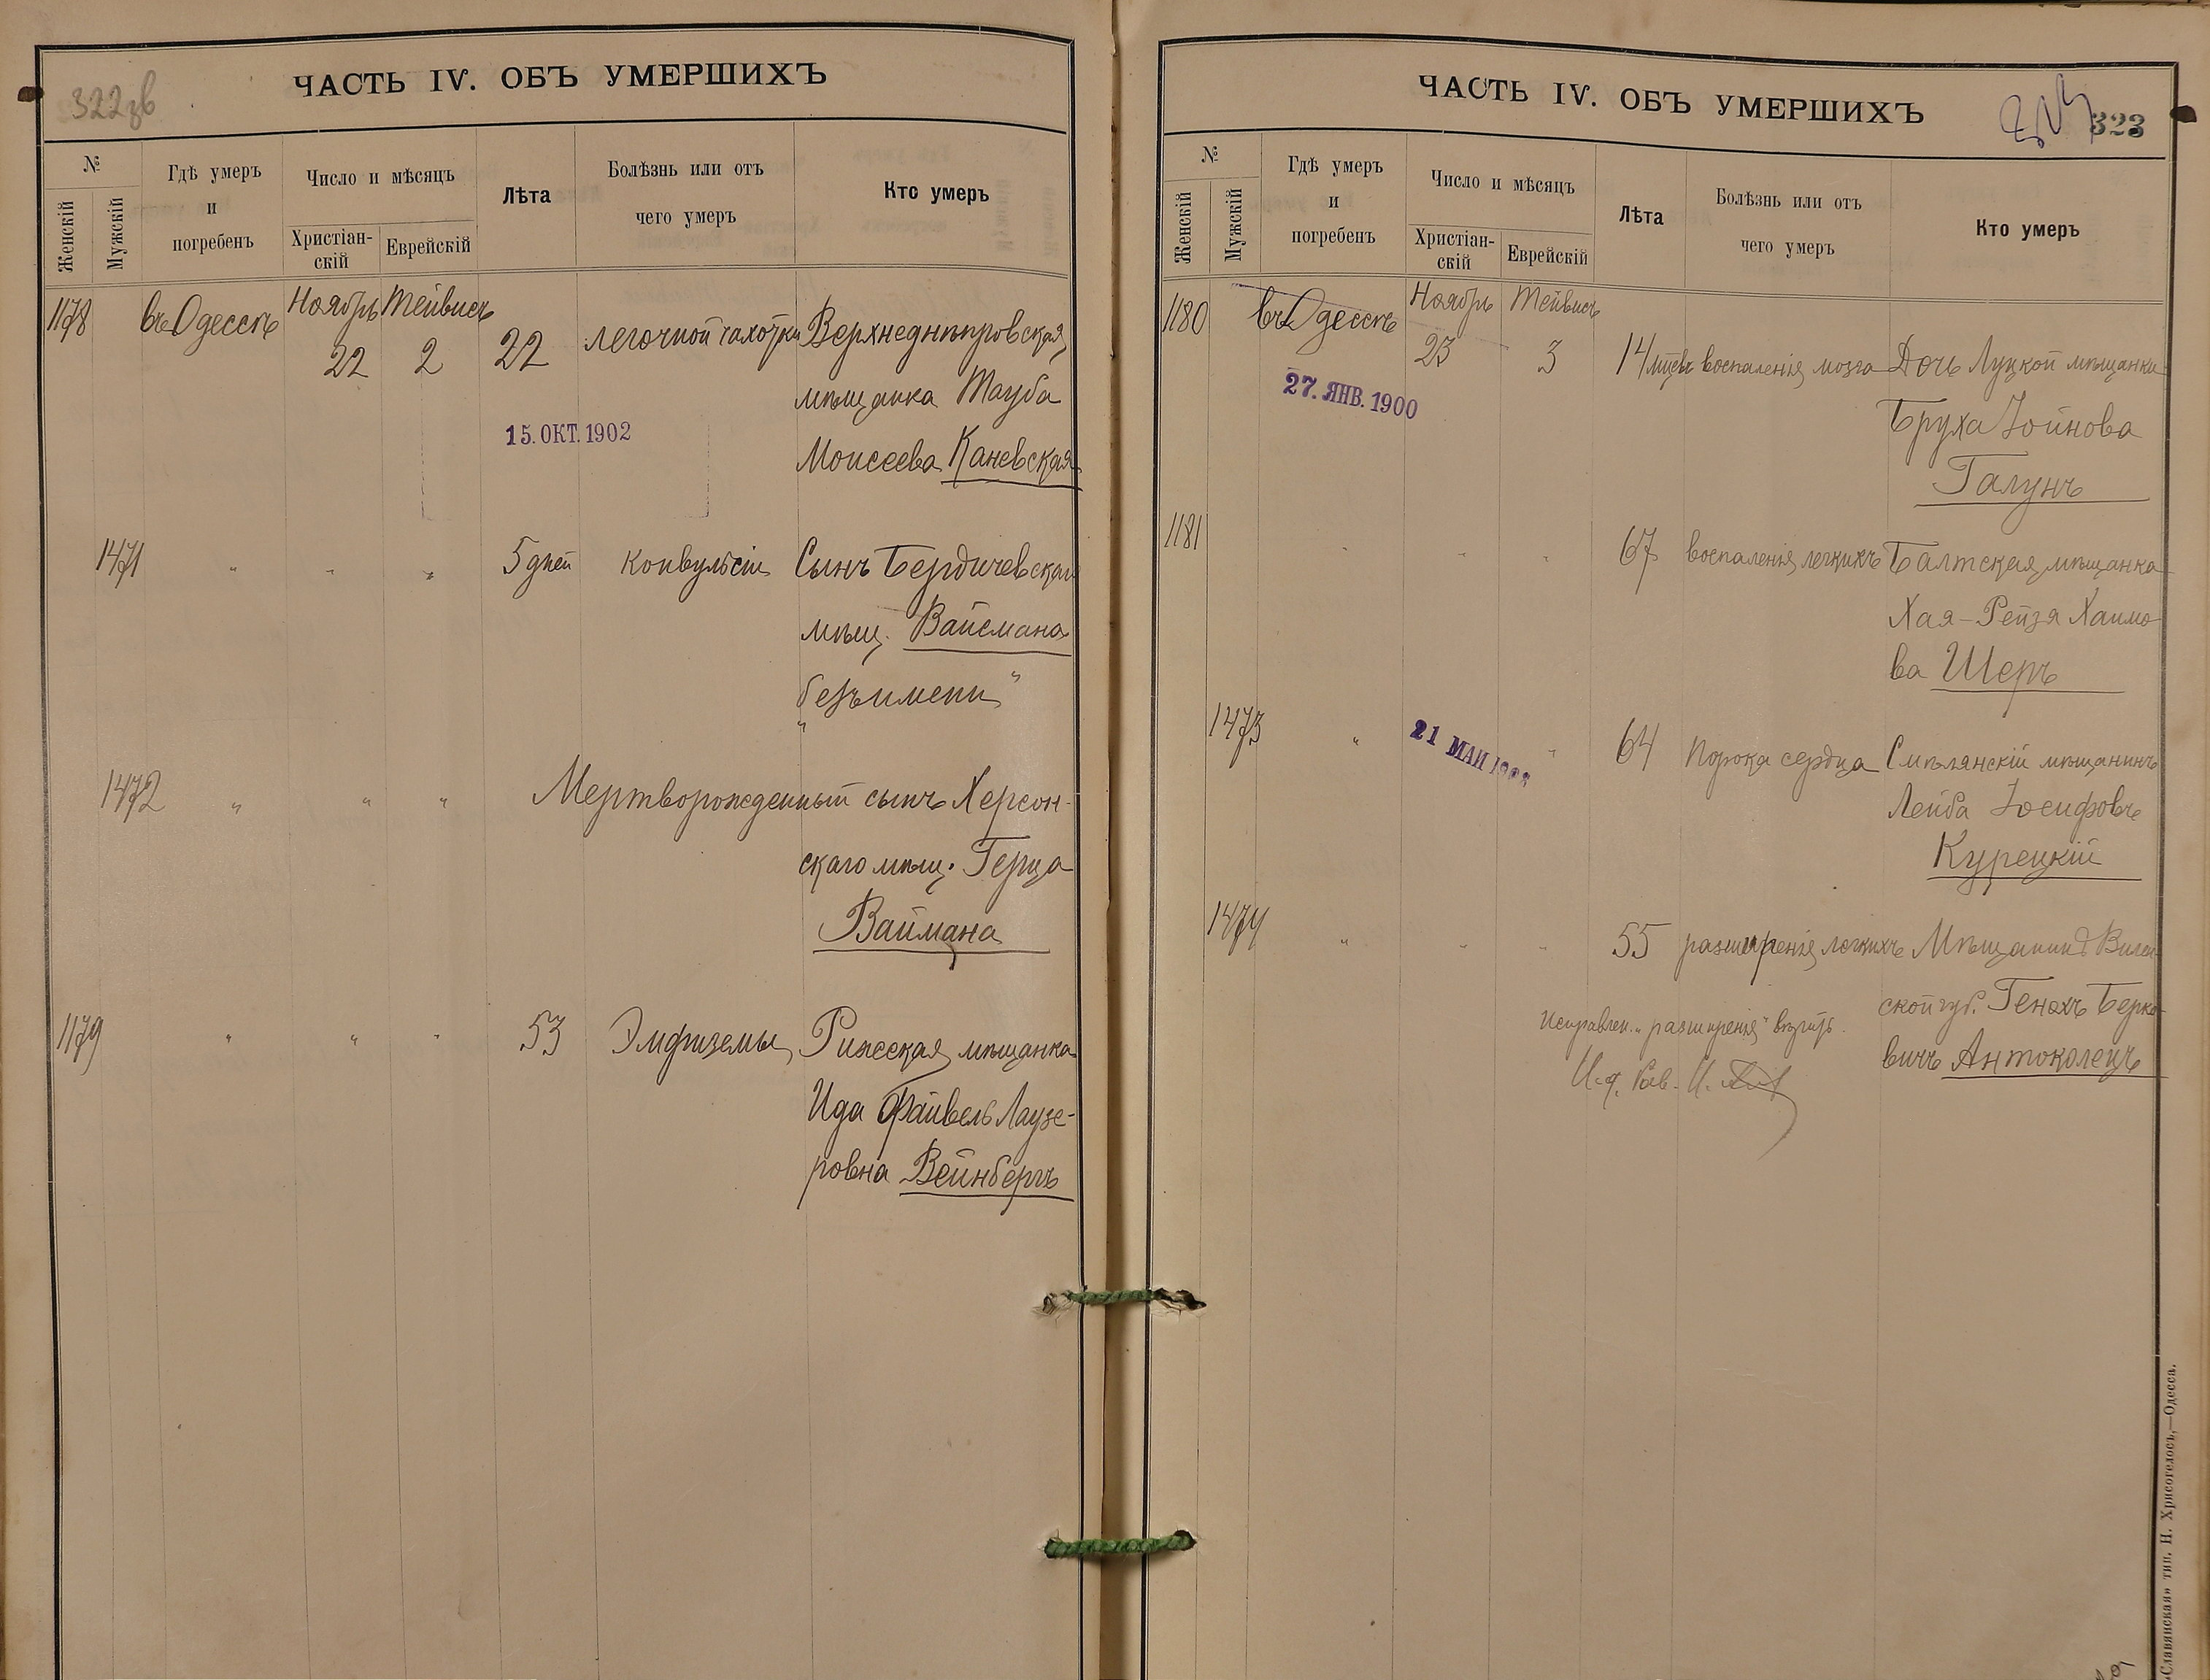 322зв
ЧАСТЬ IV. ОБЪ УМЕРШИХЪ
№
Женскій
Мужскій
Гдѣ умеръ
и
погребенъ
Число и мѣсяцъ
Христіан-
скій
Еврейскій
Лѣта
Болѣзнь или отъ
чего умеръ
Кто умеръ
1178 въ Одессѣ Ноябрь Тейвисъ
22 2 22 легочной чахотки Верхнеднѣпровская
мѣщанка Тауба
15. ОКТ. 1902
Моисеева Каневская
1471 " " " 5 дней Конвульсіи Сынъ Бердичевскаго
мѣщ. Вайсмана
"безъ имени"
1472 " " " Мертворожденный сынъ Херсон-
скаго мѣщ. Герца
Ваймана
1179 " " " 53 Эмфиземы Рижская мѣщанка
Ида Файвель Лаузе-
ровна Вейнбергъ
ЧАСТЬ IV. ОБЪ УМЕРШИХЪ
323
№
Женскій
Мужскій
Гдѣ умеръ
и
погребенъ
Число и мѣсяцъ
Христіан-
скій
Еврейскій
Лѣта
Болѣзнь или отъ
чего умеръ
Кто умеръ
1180 въ Одессѣ Ноябрь Тейвисъ
23 3 14 мѣсъ воспаленія мозга Дочь Луцкой мѣщанки
27. ЯНВ. 1900
Бруха Іойнова
Галунъ
1181 " " " 67 воспаленія легкихъ Балтская мѣщанка
Хая-Рейзя Хаимо
ва Шеръ
1473 " 21 МАИ " 64 Порока сердца Смѣлянскій мѣщанинъ
Лейба Іосифовъ
Курецкій
1474 " " " 55 расширенія легкихъ Мѣщанинъ Вилен
ской губ. Генахъ Берко-
вичъ Антоколецъ
Исправлен. "расширенія" вѣрить.
И. д. Рав. И.
«Славянская» тип. Н. Хрисогелосъ,—Одесса.